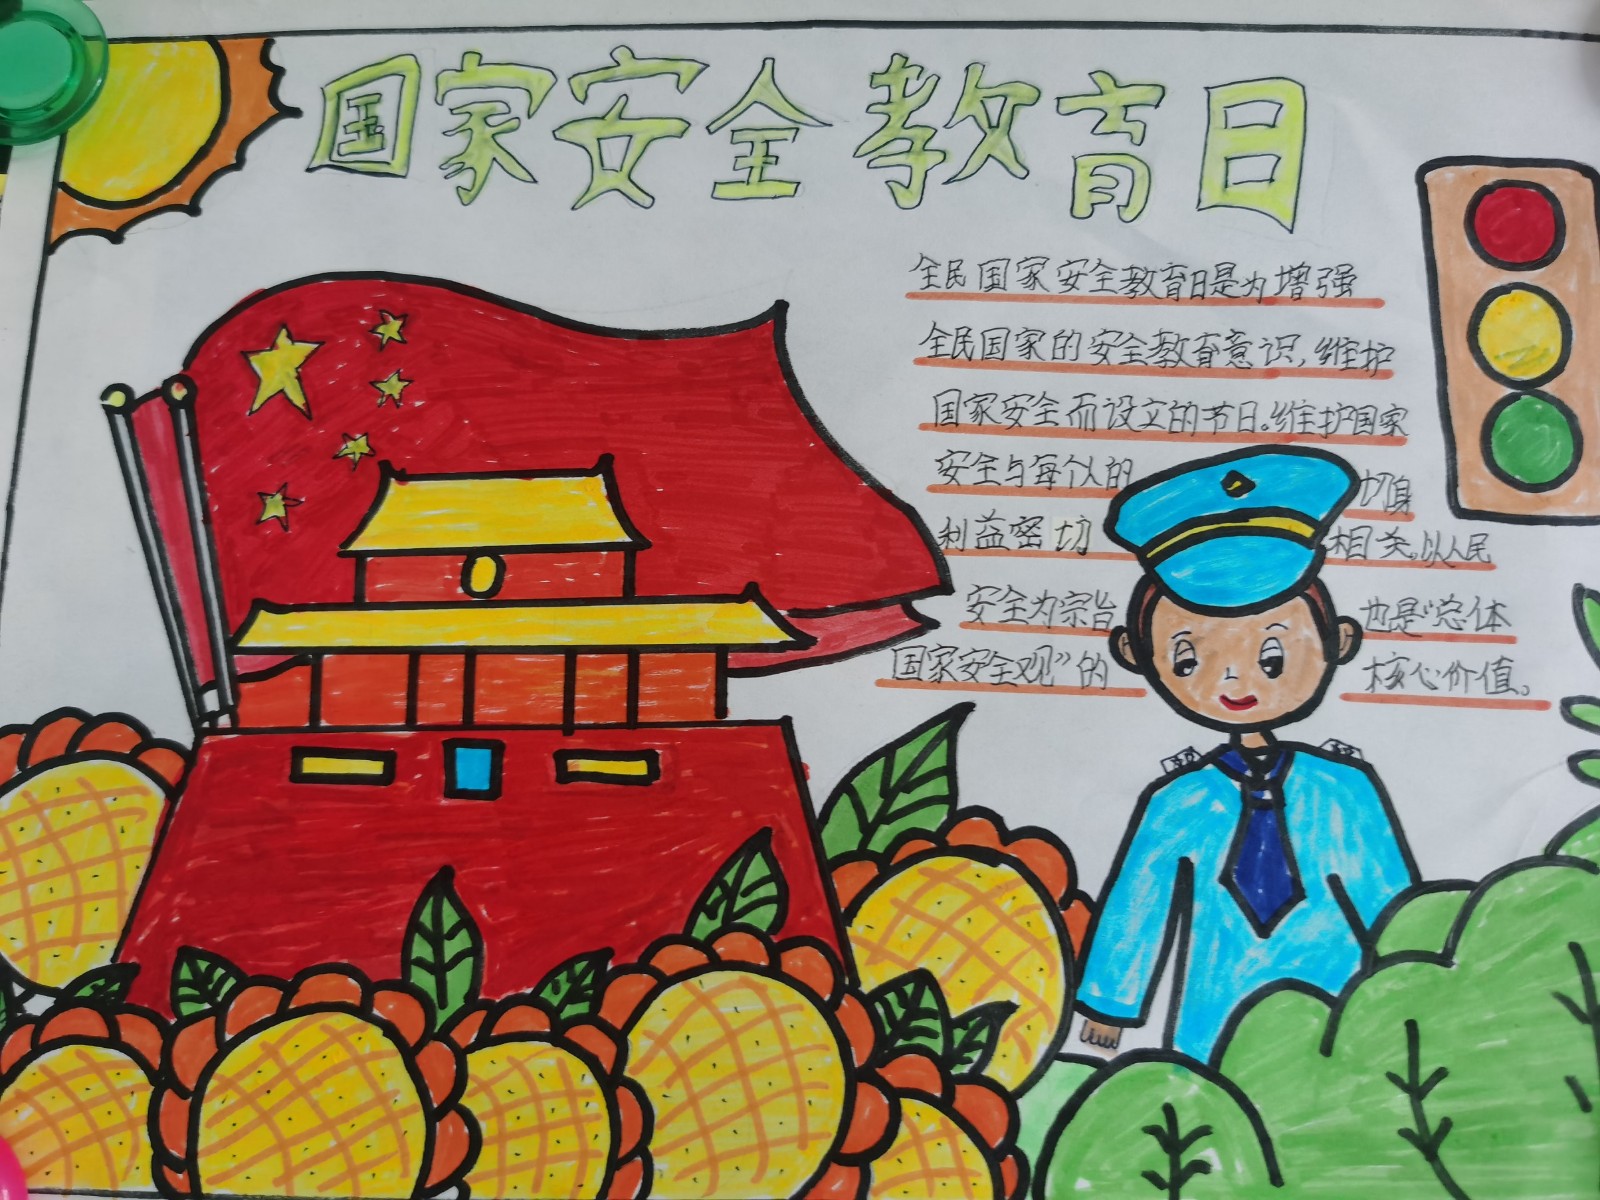 国家安全教育日
全民国家安全教育日是为增强
全民国家的安全教育意识,维护
国家安全而设立的节日。维护国家
安全与每个人的切身
利益密切相关。以人民
安全为宗旨也是“总体
国家安全观”的核心价值。